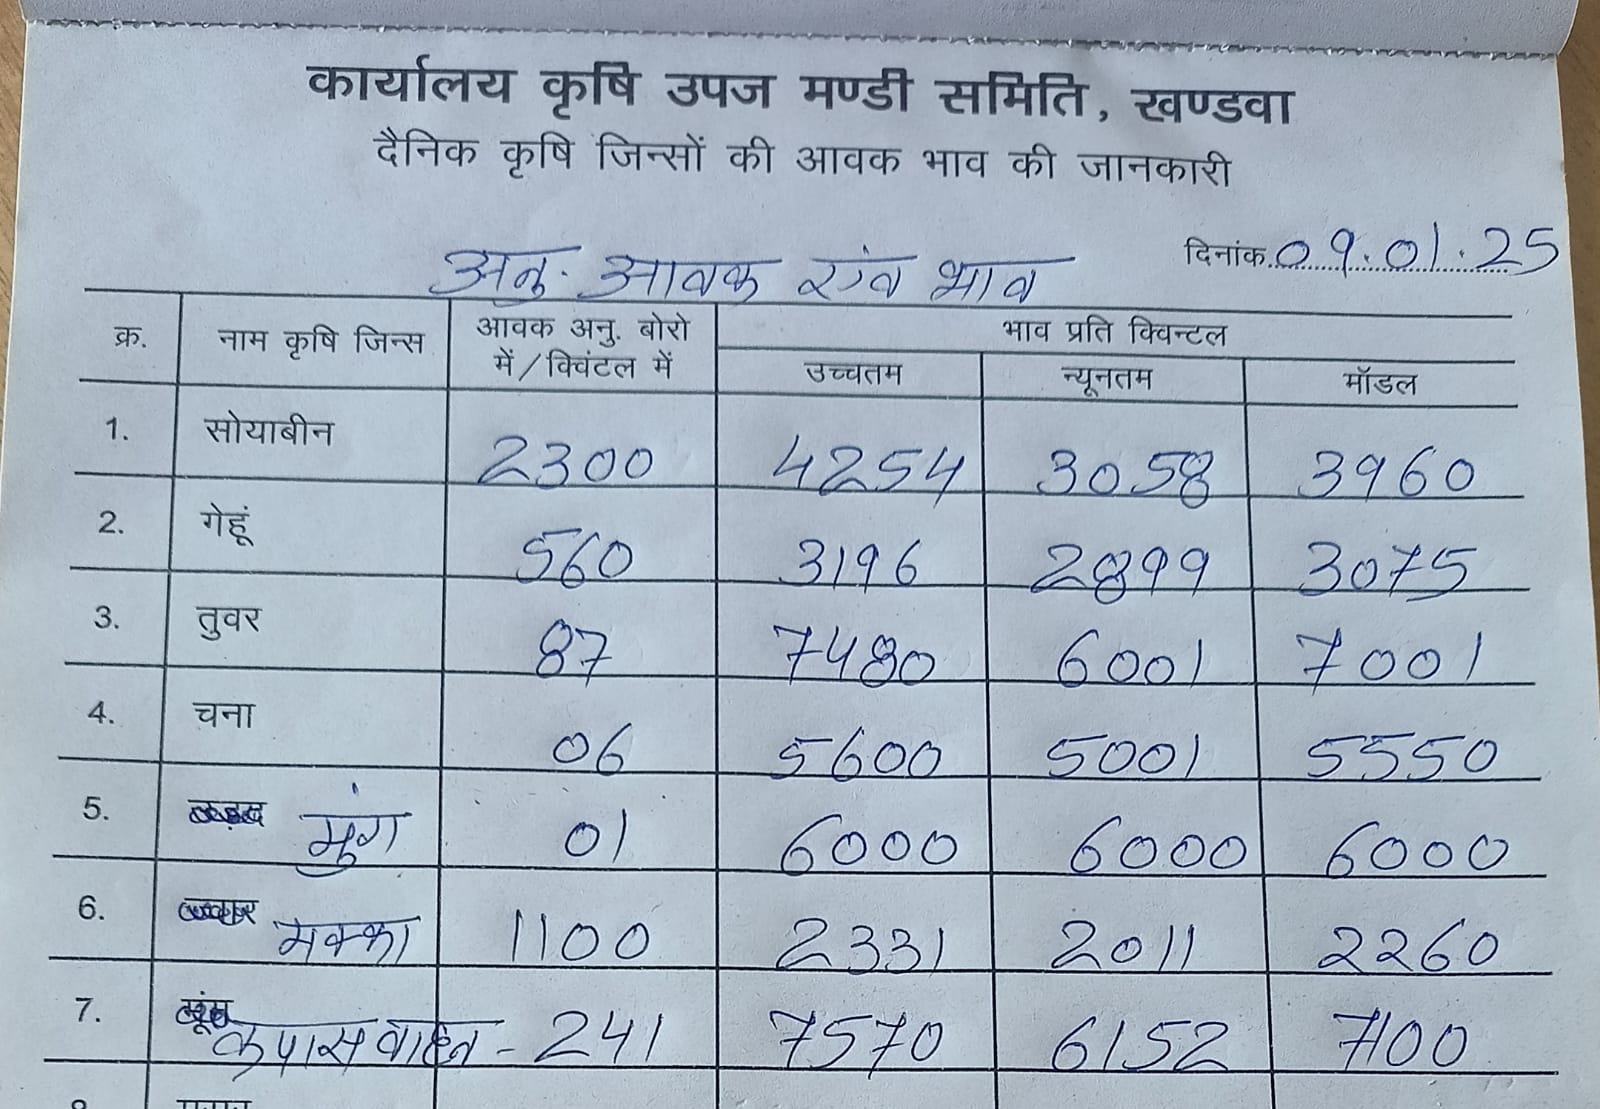 कार्यालय कृषि उपज मण्डी समिति, खण्डवा
दैनिक कृषि जिन्सों की आवक भाव की जानकारी
दिनांक 09.01.25
अनु. आवक एंव भाव
क्र. नाम कृषि जिन्स आवक अनु. बोरो में/क्विंटल में भाव प्रति क्विन्टल
उच्चतम न्यूनतम मॉडल
1. सोयाबीन 2300 4254 3058 3960
2. गेहूं 560 3196 2899 3075
3. तुवर 87 7480 6001 7001
4. चना 06 5600 5001 5550
5. मुंग 01 6000 6000 6000
6. मक्का 1100 2331 2011 2260
7. कपास वाहन - 241 7570 6152 7100